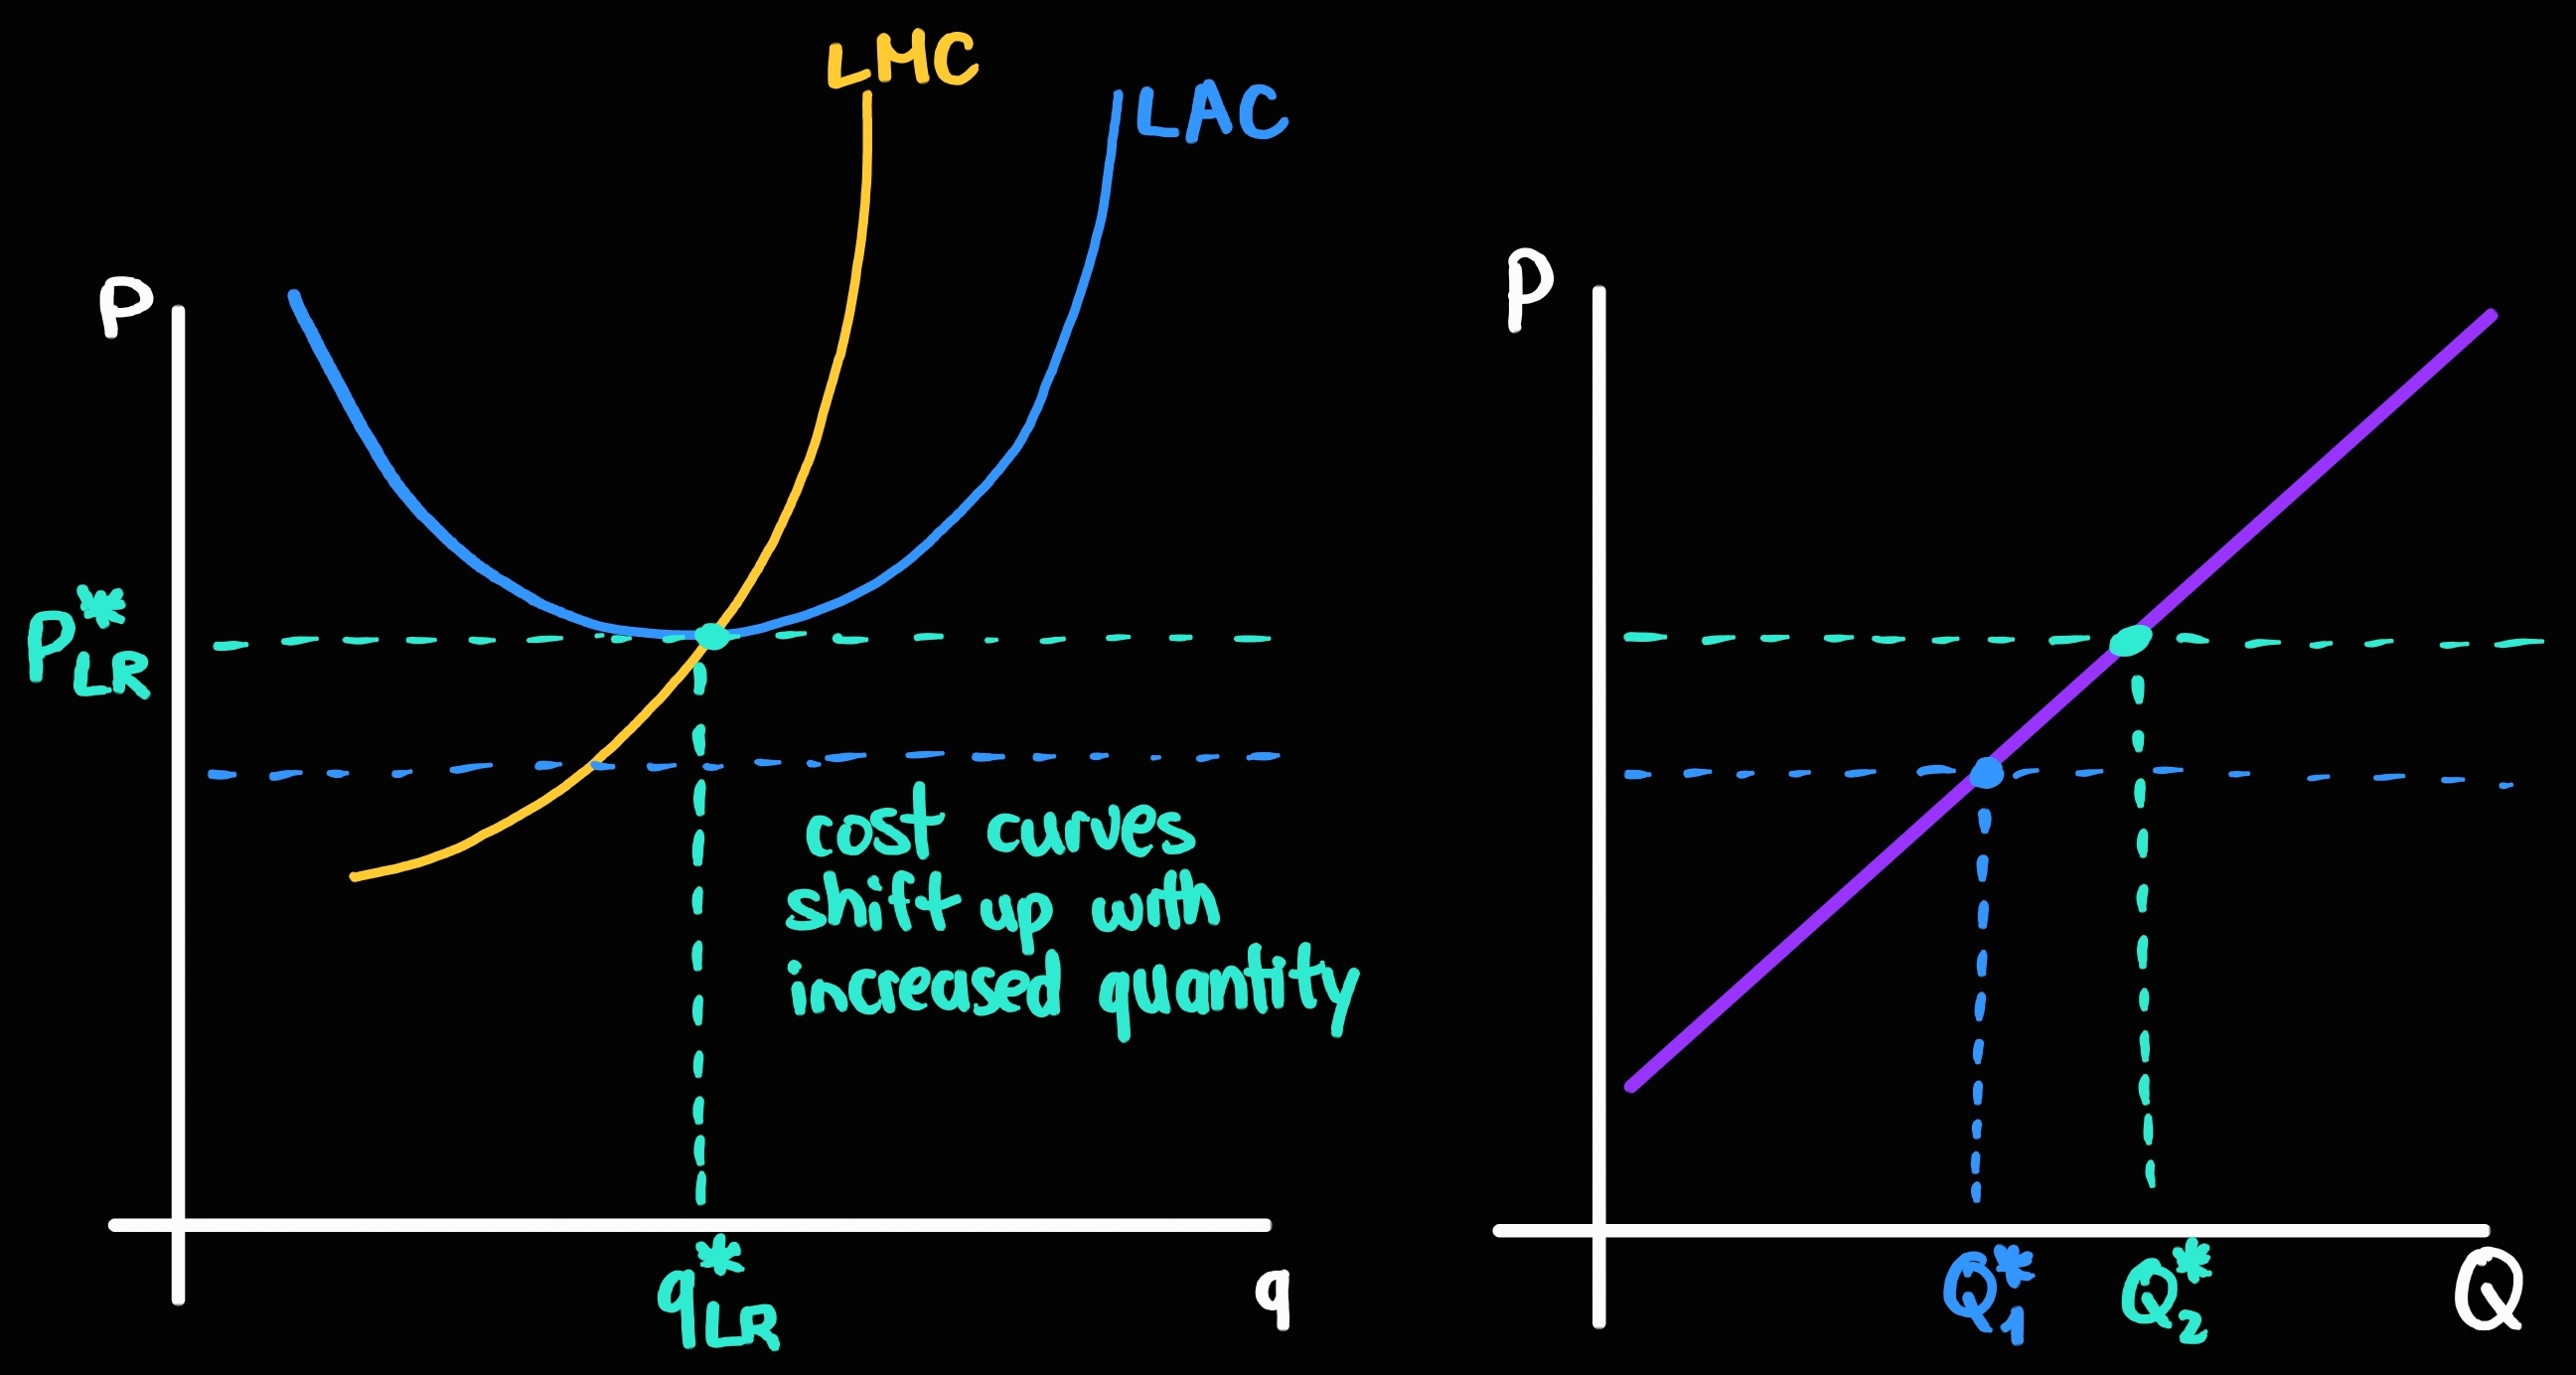 LMC
LAC
P
P*LR
cost curves
shift up with
increased quantity
q*LR
q
P
Q*1
Q*2
Q